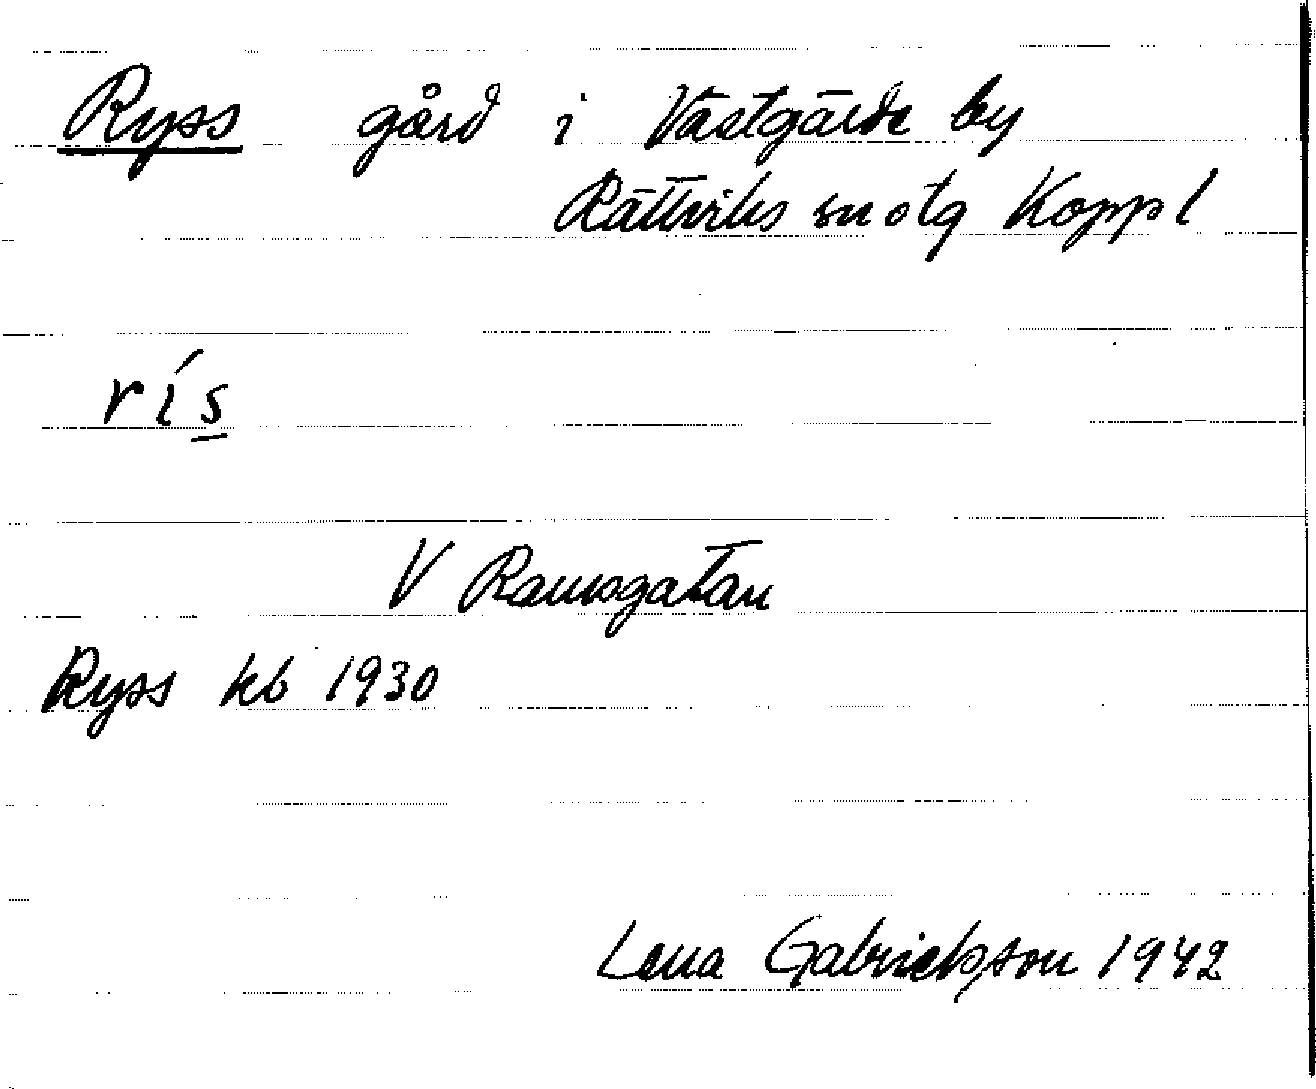 Ryss gård i Västgärde by
Rättviks sn otg Koppl
rís
V Ramsgatan
Ryss kb 1930
Lena Gabrielsson 1942